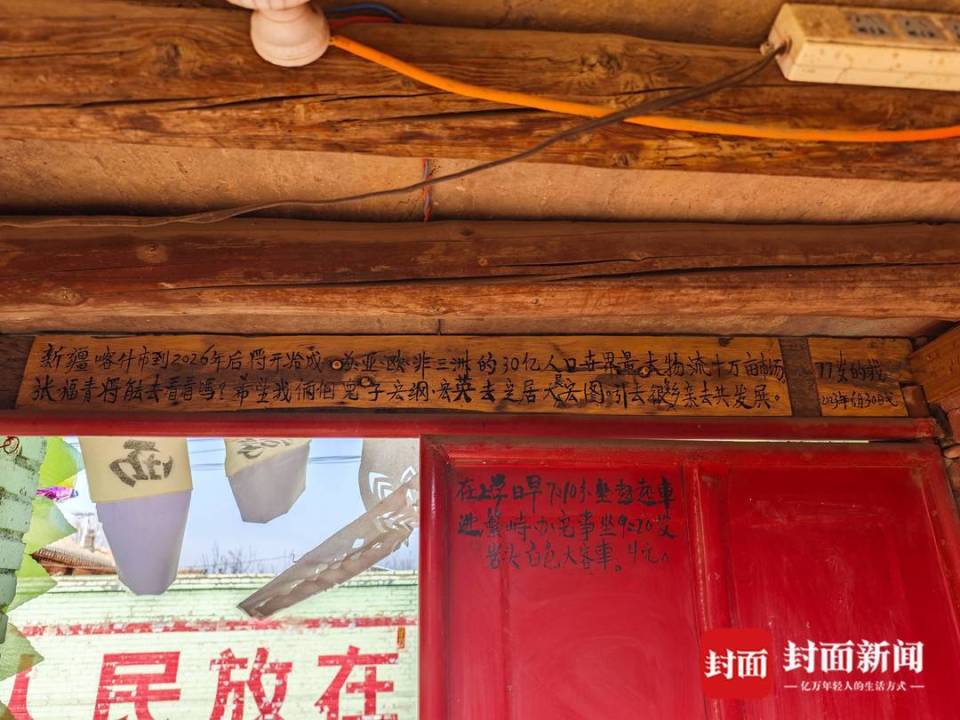 新疆喀什市到2026年后将开始成为亚欧非三洲的30亿人口世界最大物流十万亩市场
张福青将能去看看吗?希望我俩个儿子宏纲宏英去定居大展宏图。引去很多亲去共发展。
77岁的我
2023年6月30日
在上学日早7:10分坐
进繁峙办宅事坐9:20
岩头白色大客车。4元
民放在
封面
封面新闻
亿万年轻人的生活方式